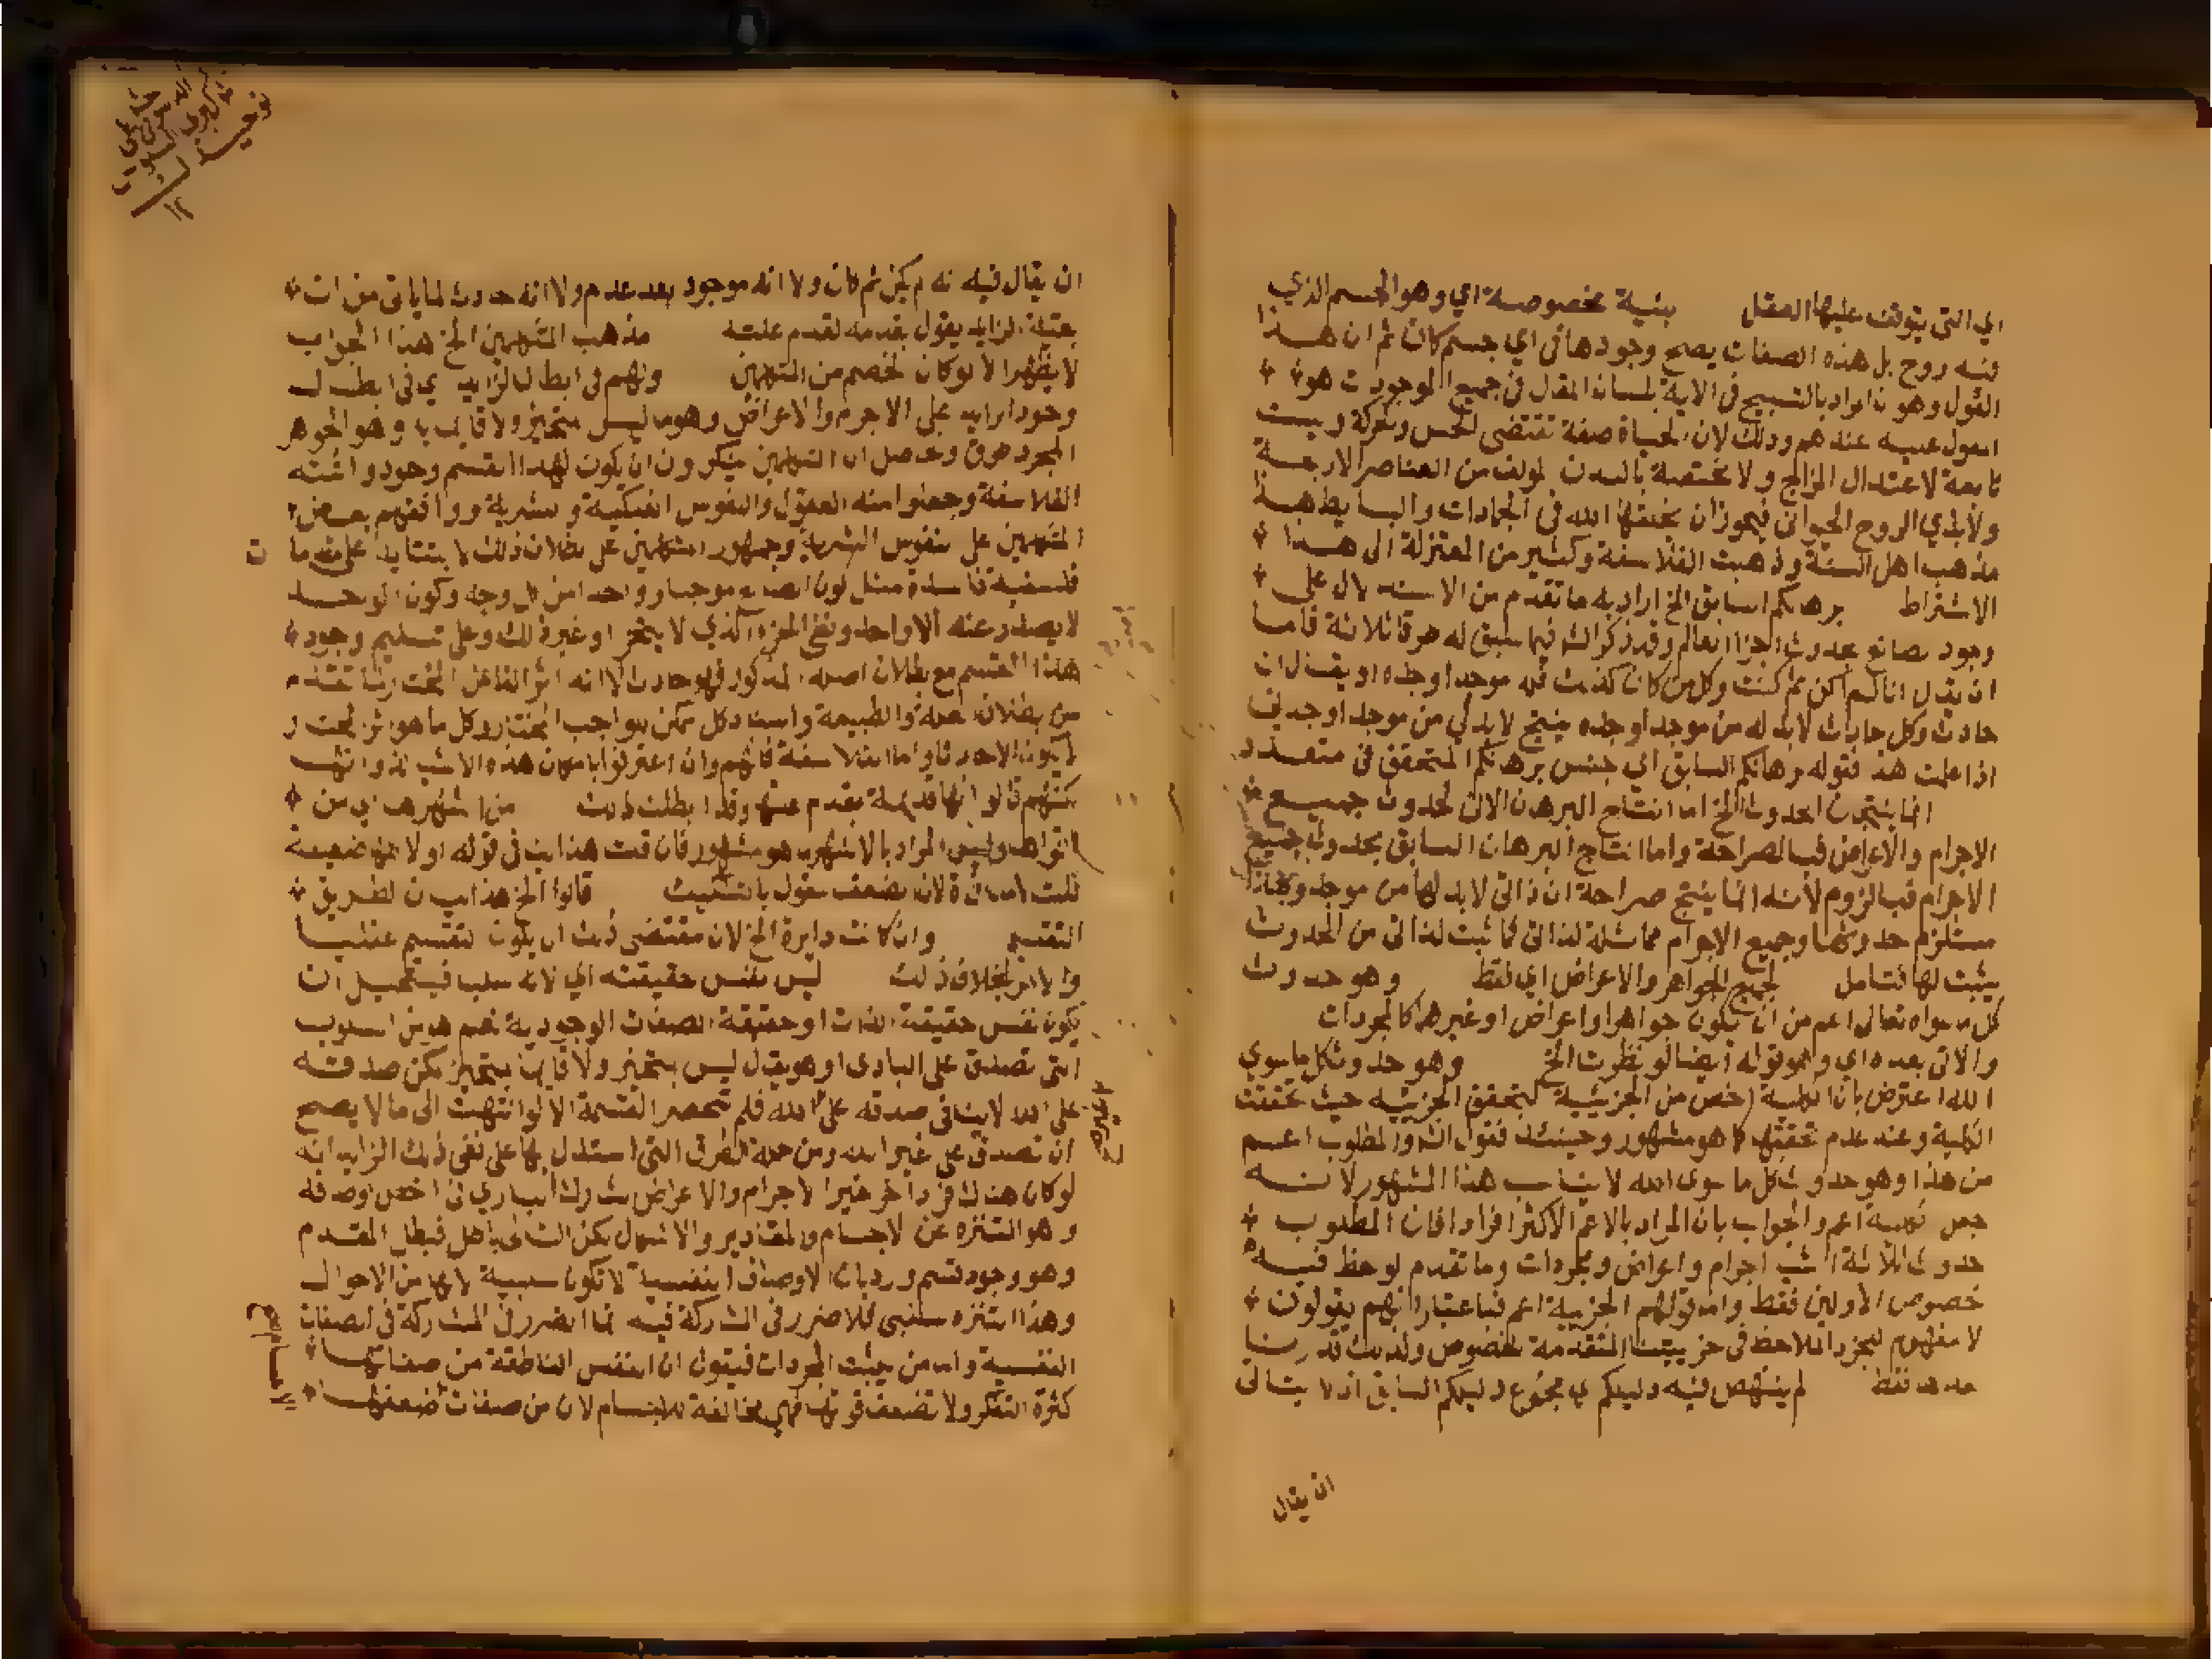 اي التي يتوقف عليها العقل بنية مخصوصة اي وهو الجسم الذي
فيه روح بل هذه الصفات يصح وجودها في اي جسم كان ثم ان هذا
القول وهو ان المراد بالتسبيح في الاية بلسان المقال في جميع الموجودات هو
المعول عليه عندهم وذلك لان الحياة صفة تقتضي الحس والحركة وليست
تابعة لاعتدال المزاج ولا مختصة بالبدن المولف من العناصر الاربعة
ولا بذي الروح الحيواني فيجوز ان يخلقها الله في الجمادات والبسايط هذا
مذهب اهل السنة وذهبت الفلاسفة وكثير من المعتزلة الى هذا
الاشتراط برهانكم السابق الخ اراد به ما تقدم من الاستدلال على
وجود صانع بحدوث اجزا العالم وقد ذكر الش فيما سبق له طرقا ثلاثة
ان يقال انا لم اكن ثم كنت وكل من كان كذلك فله موجد اوجده او يقال ان
حادث وكل حادث لابد له من موجد اوجده ينتج لابد لي من موجد اوجدني
اذا علمت هذا فقوله برهانكم السابق اي جنس برهانكم المتحقق في متعدد
انما ينتجان الحدوث الخ اما انتاج البرهان الاتي لحدوث جميع
الاجرام والاعراض فبالصراحة واما انتاج البرهان السابق بحدوث جميع
الاجرام فباللزوم لانه انما ينتج صراحة ان ذاتي لابد لها من موجد
مستلزم حدوثها وجميع الاجرام مماثلة لذاتي فما ثبت لذاتي من الحدوث
يثبت لها فتامل لجميع الجواهر والاعراض اي فقط وهو حدوث
كل ما سواه تعالى اعم من ان يكون جواهر او اعراض او غيرها كالمجردات
والاتي بعده اي وهو قوله ايضا لو نظرت الخ وهو حدوث كل ما سوى
الله اعترض بان الكلية اخص من الجزئية لتحقق الجزئية حيث تحققت
الكلية وعند عدم تحققها كما هو مشهور وحينئذ فقول الش والمطلوب اعم
من هذا وهو حدوث كل ما سوى الله لا يناسب هذا المشهور لانه
جعل الكلية اعم والجواب بان المراد بالاعم الاكثر افرادا فان المطلوب
حدوث الثلاثة اشيا اجرام واعراض ومجردات وما تقدم لوحظ فيه
خصوص الاولين فقط واما قولهم الجزيية اعم فباعتبار انهم يقولون
لا مفهوم للجزء الملاحظ في جزييتنا المتقدمة الخصوص ولذلك
فقط لم ينتهض فيه دليلكم اي مجموع دليلكم السابق اذ لا يتاتى
ان يقال
ان يقال فيه انه لم يكن ثم كان ولا انه موجود بعد عدم ولا انه حادث لما ياتي من ان
مثبته الزايد يقول بقدمه لقدم علته مذهب المتكلمين الخ هذا الجواب
لا يظهر الا لو كان الخصم من المتكلمين ولهم في ابطال الزايد اي في ابطال
وجود الزايد على الاجرام والاعراض وهو ما ليس متحيزا ولا قايما به وهو الجوهر
المجرد طرق وحاصله ان المتكلمين ينكرون ان يكون لهذا القسم وجود واثبته
الفلاسفة وجعلوا منه العقول والنفوس الفلكية والبشرية ووافقهم بعض
المتكلمين على النفوس البشرية وجمهور المتكلمين على بطلان ذلك لابتنايه على مقدمات
فلسفية فاسدة مثل كون الصانع موجبا وواحدا من كل وجه وكون الواحد
لا يصدر عنه الا واحد ونفي الجزء الذي لا يتجزا وغير ذلك وعلى تسليم وجود
هذا القسم مع بطلان اصله المذكور فهو حادث لانه اثر الفاعل المختار لما تقدم
من بطلان العلة والطبيعة واسناد كل ممكن للواجب المختار وكل ما هو اثر لمختار
لا يكون الا حادثا واما الفلاسفة فانهم وان اعترفوا بامكان هذه الاشيا لذواتها
لكنهم قالوا انها قديمة بقدم علتها وقد ابطلت ذلك من اشهرها اي من
اقواها وليس المراد بالاشهر ما هو مشهور فان قلت هذا ينافي قوله اولا انها ضعيفة
قلت لا منافاة لان الضعف مقول بالتشكيك قالوا الخ هذا بيان لطريق
التقسيم وان كانت دايرة الخ لان مقتضى ذلك ان يكون التقسيم عقليا
والامر بخلاف ذلك ليس نفس حقيقته اي لانه سلب فيستحيل ان
يكون نفس حقيقة الذات او حقيقة الصفات الوجودية نعم هو من السلوب
التي تصدق على الباري او هو يقال ليس بمتحيز ولا قايم بمتحيز لكن صدقه
على الله لا ينافي صدقه على الله فلم تنحصر القسمة الا لو انتهت الى ما لا يصح
ان تصدق على غير الله ومن جملة الطرق التي استدل بها على نفي ذلك الزايد انه
لو كان هناك فرد اخر غير الاجرام والاعراض لشارك الباري في اخص اوصافه
وهو التنزه عن الاجسام والمقادير والاشكال لكن التالي باطل فبطل المقدم
وهو وجود قسم ورد بان الاوصاف النفسية لا تكون سلبية لانها من الاحوال
وهذا التنزه سلبي فلا ضرر في المشاركة فيه انما الضرر في المشاركة في الصفات
النفسية واما من يثبت المجردات فيقول ان النفس الناطقة من صفاتها
كثرة التفكر ولا تضعف قوتها فهي مخالفة للاجسام لان من صفات ضعفها